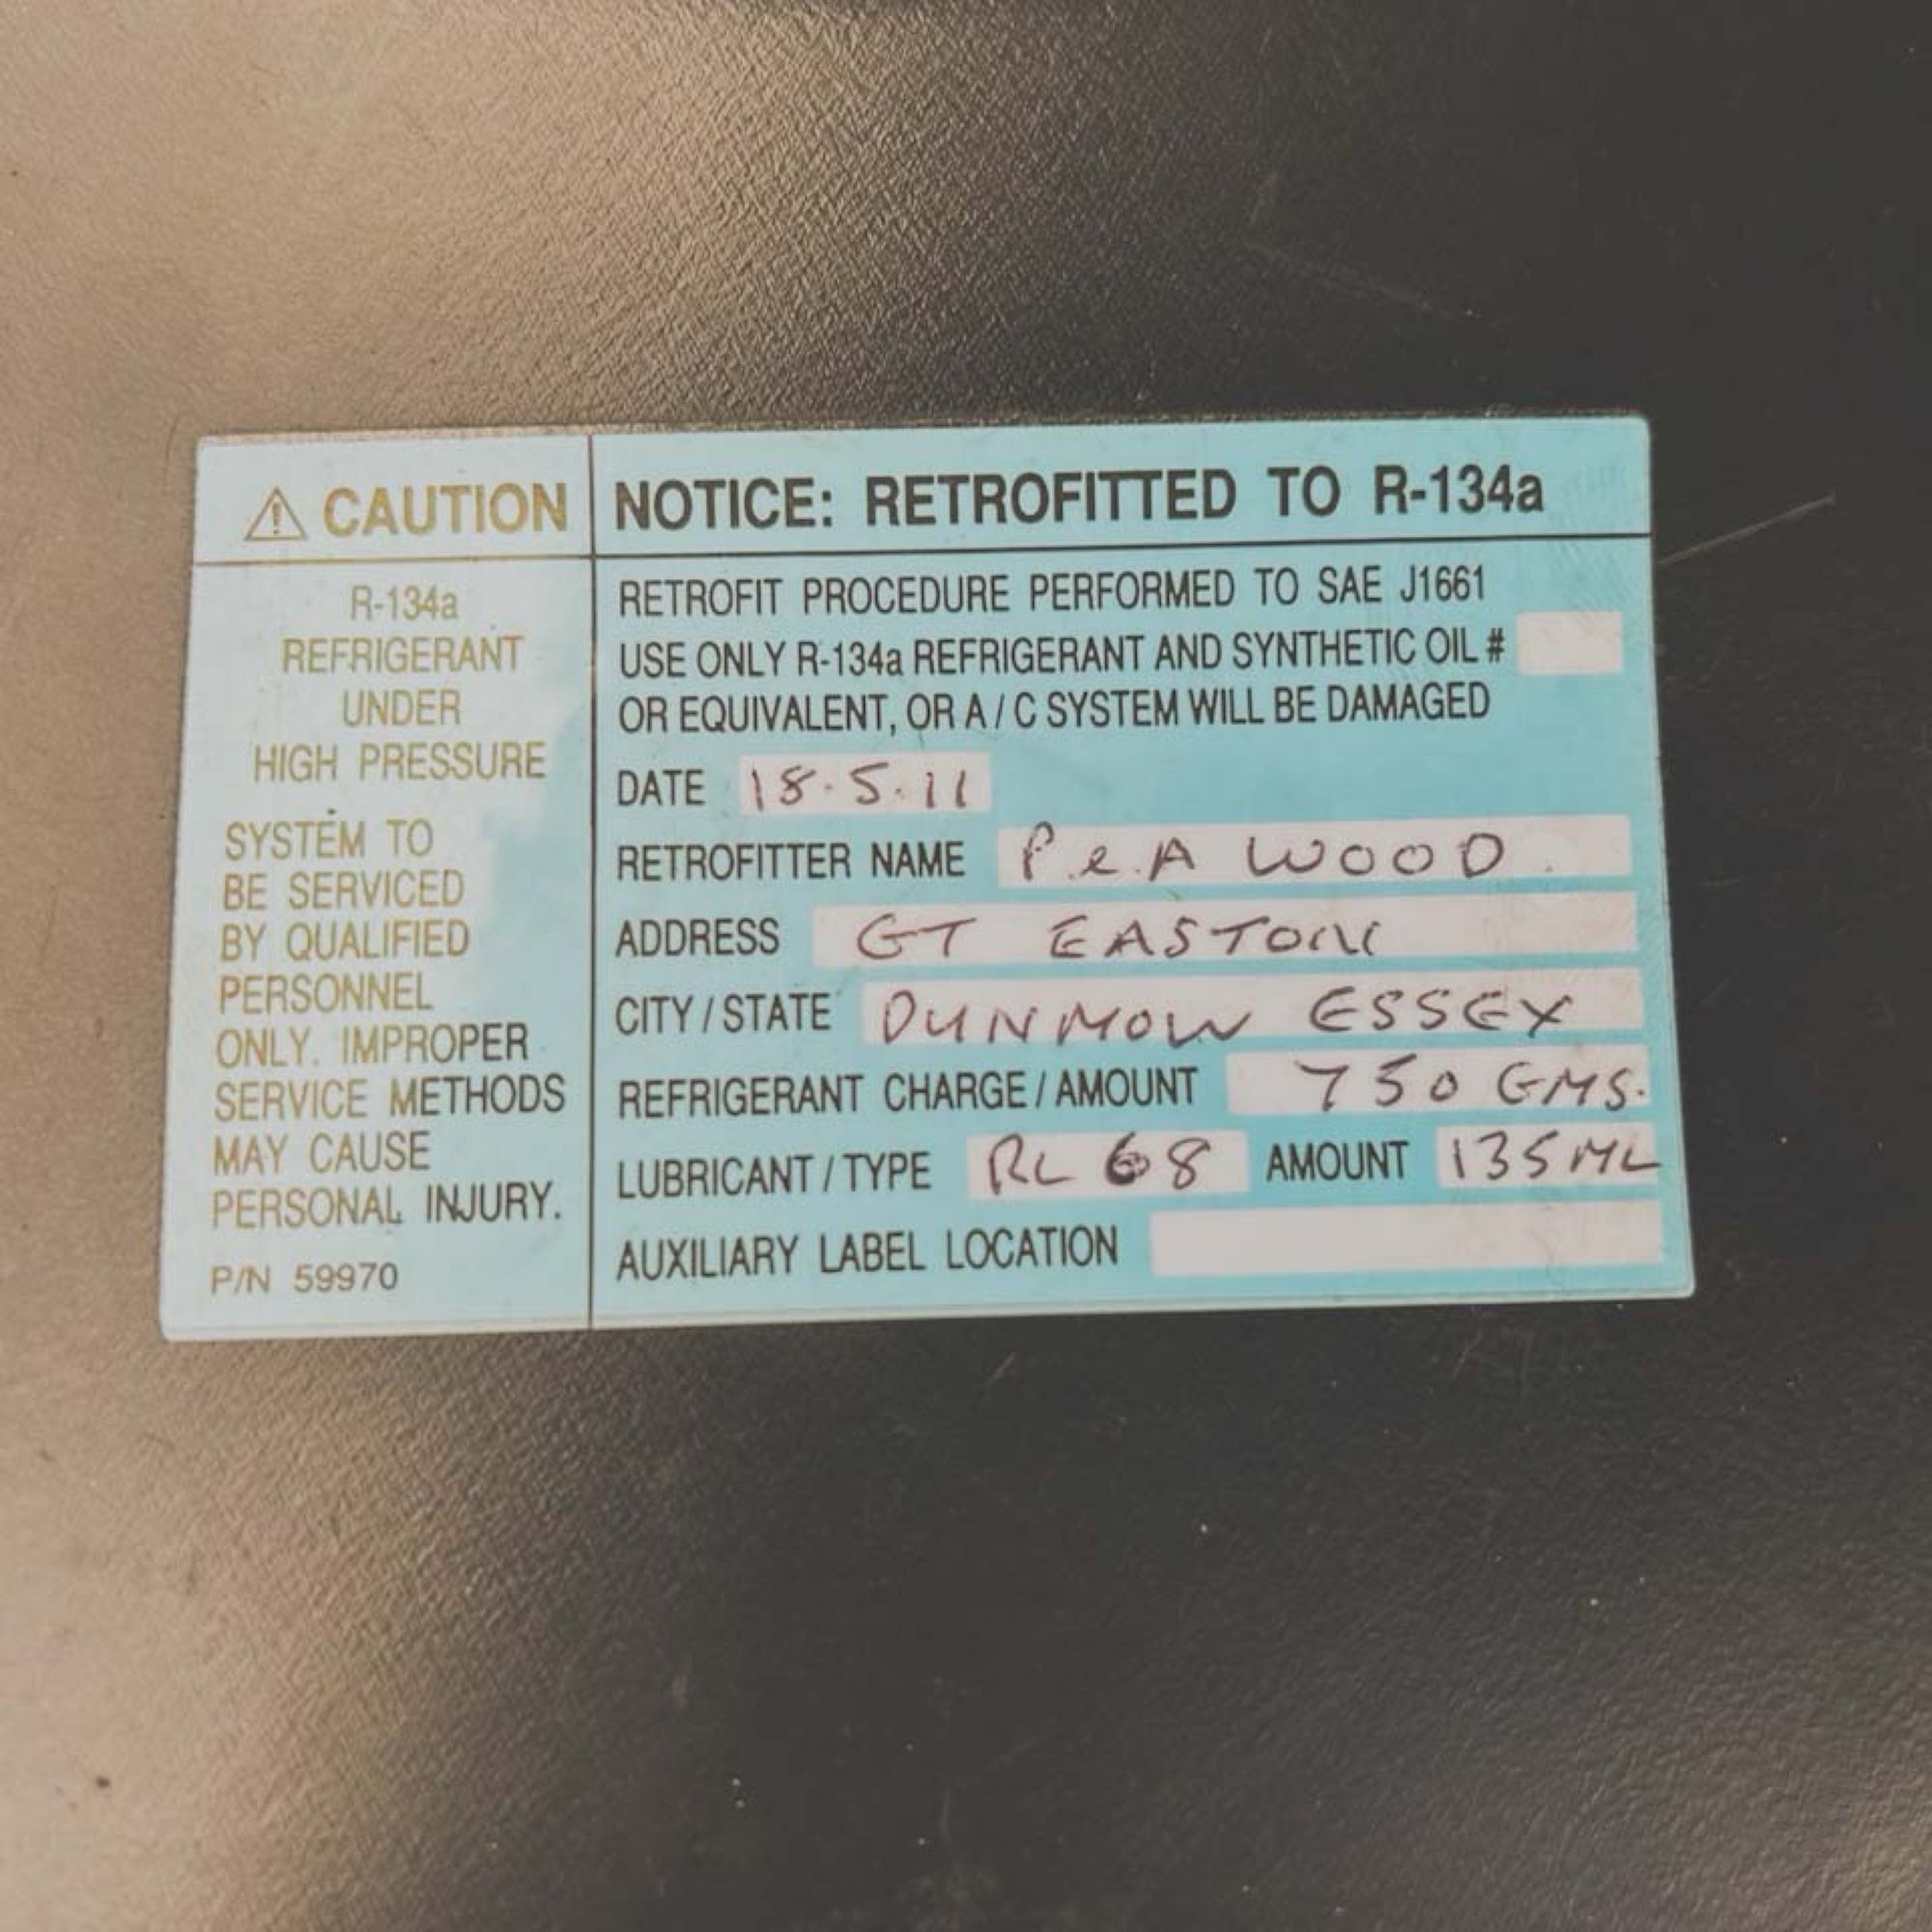 ⚠ CAUTION
R-134a
REFRIGERANT
UNDER
HIGH PRESSURE
SYSTEM TO
BE SERVICED
BY QUALIFIED
PERSONNEL
ONLY. IMPROPER
SERVICE METHODS
MAY CAUSE
PERSONAL INJURY.
P/N 59970
NOTICE: RETROFITTED TO R-134a
RETROFIT PROCEDURE PERFORMED TO SAE J1661
USE ONLY R-134a REFRIGERANT AND SYNTHETIC OIL #
OR EQUIVALENT, OR A / C SYSTEM WILL BE DAMAGED
DATE 18.5.11
RETROFITTER NAME P.&.A WOOD.
ADDRESS GT EASTON
CITY / STATE DUNMOW ESSEX
REFRIGERANT CHARGE / AMOUNT 750 GMS.
LUBRICANT / TYPE RL 68 AMOUNT 135ML
AUXILIARY LABEL LOCATION